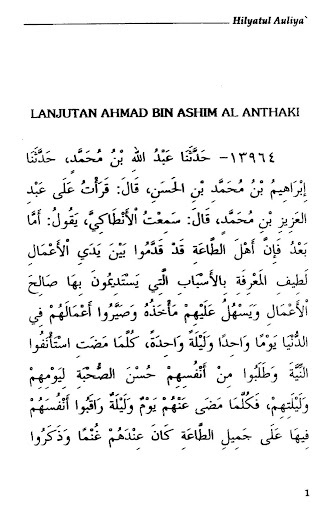 Hilyatul Auliya`
LANJUTAN AHMAD BIN ASHIM AL ANTHAKI
١٣٩٦٤- حَدَّثَنَا عَبْدُ اللهِ بْنُ مُحَمَّدٍ، حَدَّثَنَا
إِبْرَاهِيمُ بْنُ مُحَمَّدِ بْنِ الْحَسَنِ، قَالَ: قَرَأْتُ عَلَى عَبْدِ
الْعَزِيزِ بْنِ مُحَمَّدٍ، قَالَ: سَمِعْتُ الْأَنْطَاكِيَّ، يَقُولُ: أَمَّا
بَعْدُ فَإِنَّ أَهْلَ الطَّاعَةِ قَدْ قَدَّمُوا بَيْنَ يَدَيِ الْأَعْمَالِ
لَطِيفَ الْمَعْرِفَةِ بِالْأَسْبَابِ الَّتِي يَسْتَدِيمُونَ بِهَا صَالِحَ
الْأَعْمَالِ وَيَسْهُلُ عَلَيْهِمْ مَأْخَذُهُ وَصَيَّرُوا أَعْمَالَهُمْ فِي
الدُّنْيَا يَوْمًا وَاحِدًا وَلَيْلَةً وَاحِدَةً، كُلَّمَا مَضَتِ اسْتَأْنَفُوا
النِّيَّةَ وَطَلَبُوا مِنْ أَنْفُسِهِمْ حُسْنَ الصُّحْبَةِ لِيَوْمِهِمْ
وَلَيْلَتِهِمْ، فَكُلَّمَا مَضَى عَنْهُمْ يَوْمٌ وَلَيْلَةٌ رَاقَبُوا أَنْفُسَهُمْ
فِيهَا عَلَى جَمِيلِ الطَّاعَةِ كَانَ عِنْدَهُمْ غُنْمًا وَذَكَرُوا
1